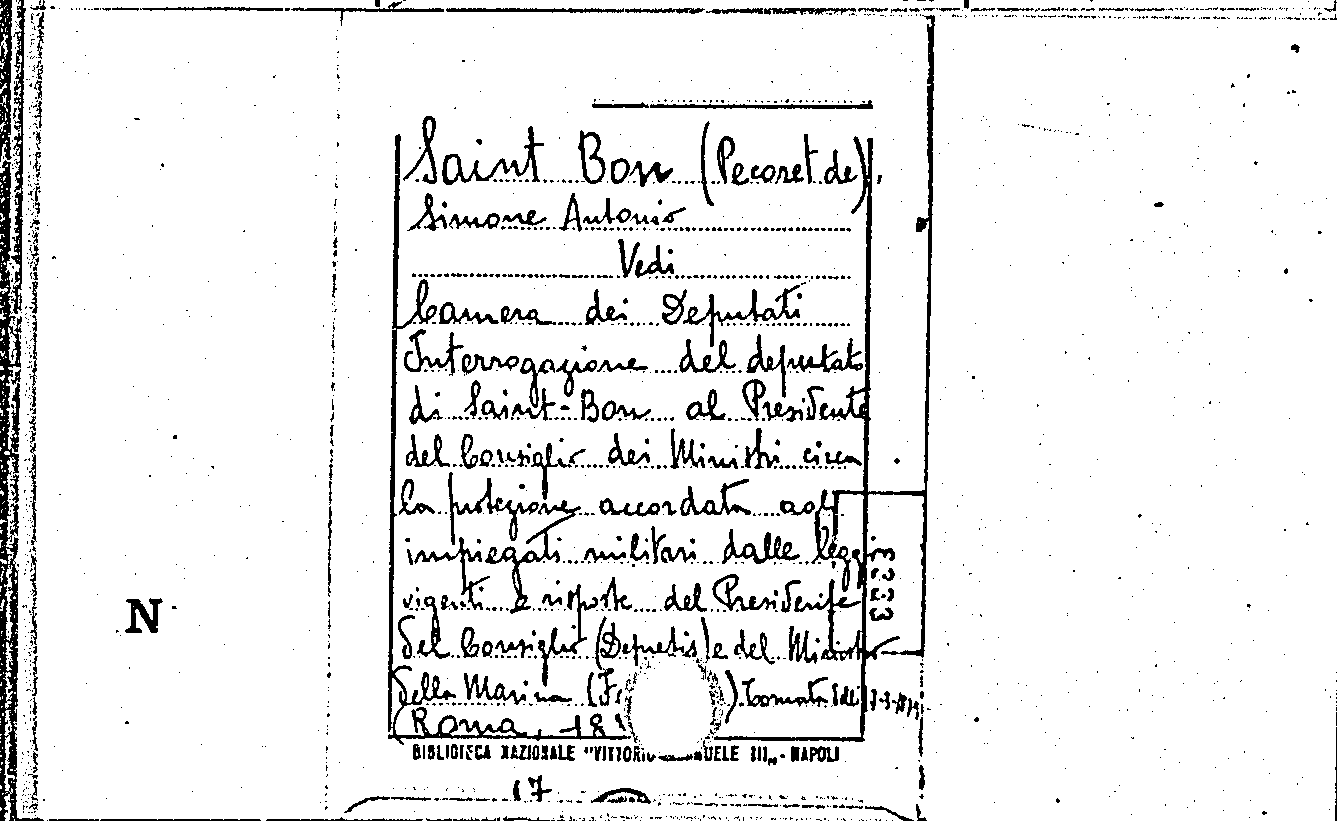 Saint Bon (Pecoret de),
Simone Antonio
Vedi
Camera dei Deputati
Interrogazione del deputato
di Saint-Bon al Presidente
del Consiglio dei Ministri circa
la protezione accordata agli
impiegati militari dalle leggi
vigenti e risposte del Presidente
del Consiglio (Depretis) e del Ministro
della Marina ( ). Tornata del
(Roma, 18
BIBLIOTECA NAZIONALE "VITTORIO EMANUELE III" - NAPOLI
17
N